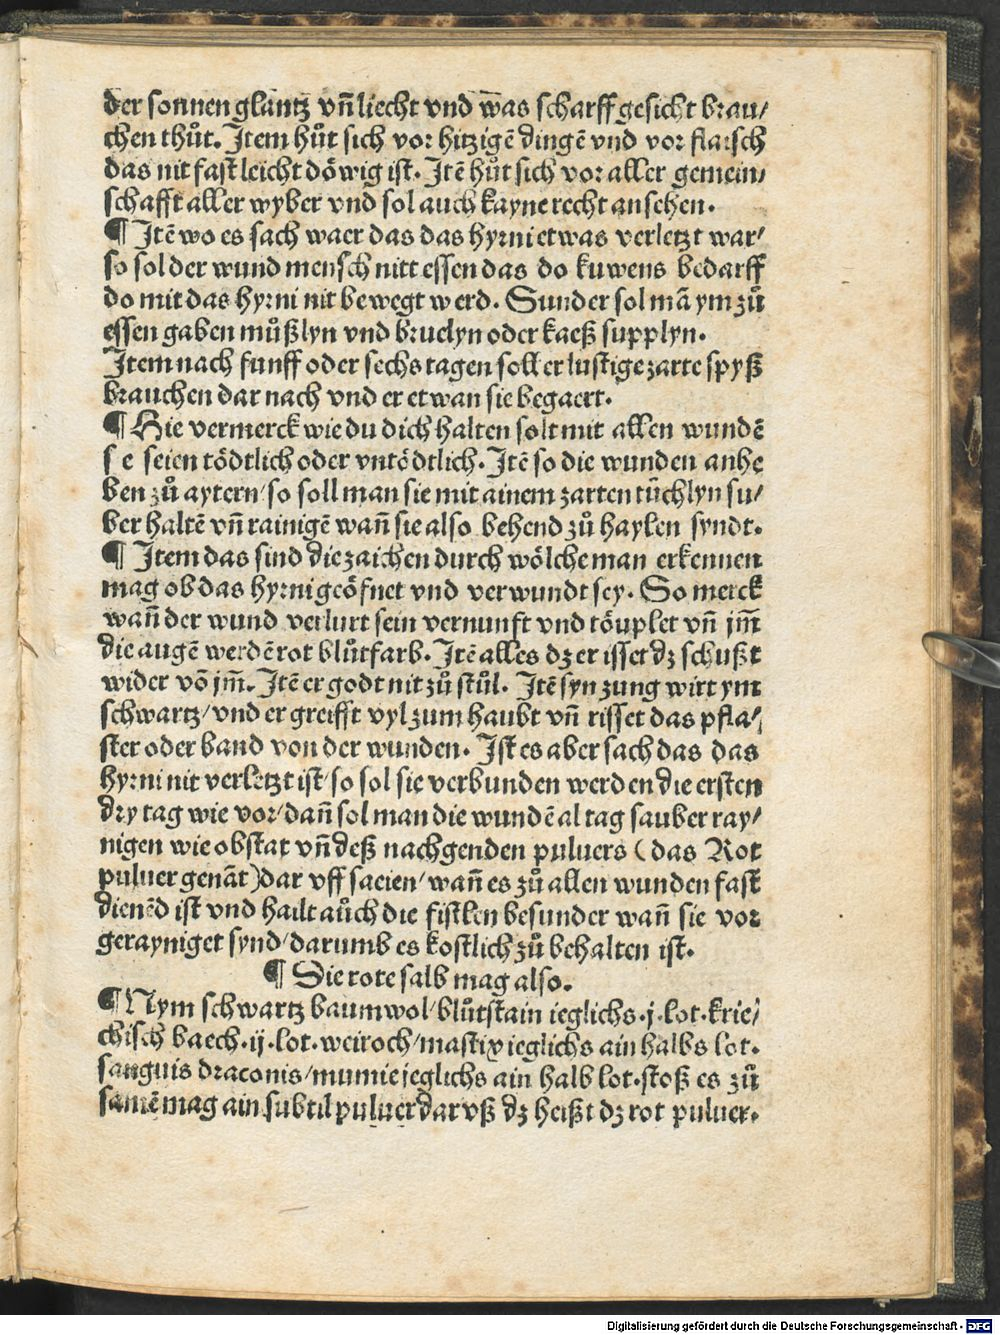 der sonnen glantz vñ liecht vnd was scharff gesicht brau/
chen thůt. Item hůt sich vor hitzigē dingē vnd vor flaisch
das nit fast leicht döwig ist. Itē hůt sich vor aller gemein/
schafft aller wyber vnd sol auch kayne recht ansehen.
¶ Itē wo es sach waer das das hyrni etwas verletzt war/
so sol der wund mensch nitt essen das do kuwens bedarff
do mit das hyrni nit bewegt werd. Sunder sol mā ym zů
essen gaben můßlyn vnd bruelyn oder kaeß supplyn.
Item nach funff oder sechs tagen soll er lustige zarte spyß
brauchen dar nach vnd er etwan sie begaert.
¶ Hie vermerck wie du dich halten solt mit allen wundē
s e seien tödtlich oder vntödtlich. Itē so die wunden anhe
ben zů aytern/so soll man sie mit ainem zarten tüchlyn su/
ber haltē vñ rainigē wañ sie also behend zů haylen syndt.
¶ Item das sind die zaichen durch wölche man erkennen
mag ob das hyrni geöfnet vnd verwundt sey. So merck
wañ der wund verlurt sein vernunft vnd töuplet vñ jm̄
die augē werdē rot blůtfarb. Itē alles dz er isset dz schußt
wider vō jm̄. Itē er godt nit zů stůl. Itē syn zung wirt ym
schwartz/vnd er greifft vyl zum haubt vñ risset das pfla/
ster oder band von der wunden. Ist es aber sach das das
hyrni nit verletzt ist/so sol sie verbunden werden die ersten
dry tag wie vor/dañ sol man die wundē al tag sauber ray/
nigen wie obstat vñ deß nachgenden puluers (das Rot
puluer genāt)dar vff saeien/wañ es zů allen wunden fast
dienēd ist vnd hailt aůch die fistlen besunder wañ sie vor
gerayniget synd/darumb es kostlich zů behalten ist.
¶ Die rote salb mag also.
¶ Nym schwartz baumwol/blůtstain ieglichs.j.lot.krie/
chisch baech.ij.lot.weiroch/mastix ieglichs ain halbs lot.
sanguis draconis/mumie jeglichs ain halb lot.stoß es zů
samē mag ain subtil puluer dar vß dz heißt dz rot puluer.
Digitalisierung gefördert durch die Deutsche Forschungsgemeinschaft - DFG